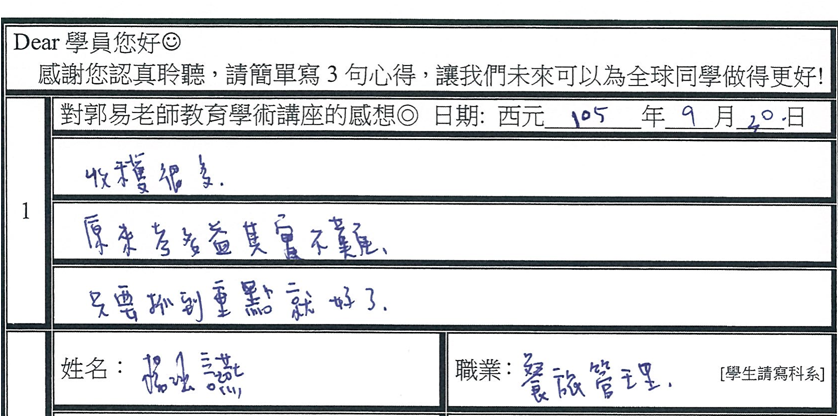 Dear 學員您好☺
感謝您認真聆聽，請簡單寫 3 句心得，讓我們未來可以為全球同學做得更好!
對郭易老師教育學術講座的感想◎ 日期: 西元 105 年 9 月 30 日
1
收穫很多.
原來考多益其實不難、
只要抓到重點就好了.
姓名： 楊 讌
職業： 餐旅管理. [學生請寫科系]